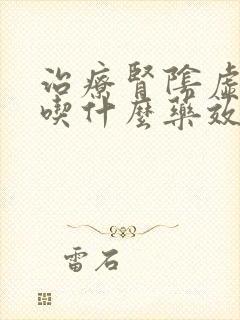 治療腎陰虛
喫什麼藥效
雷石